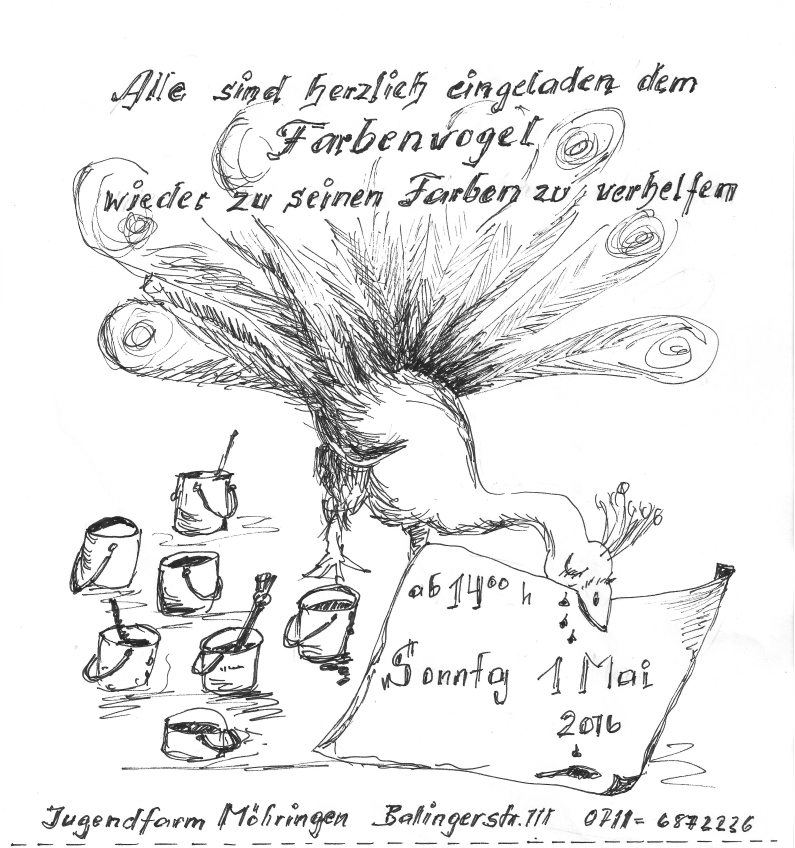 Alle sind herzlich eingeladen dem
Farbenvogel
wieder zu seinen Farben zu verhelfen
ab 14⁰⁰ h
Sonntg 1 Mai
2016
Jugendfarm Möhringen Balingerstr. 111 0711= 6872226